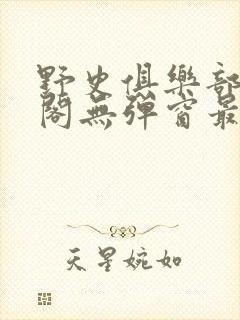 野史俱樂部
閣無彈窗最
天星婉如